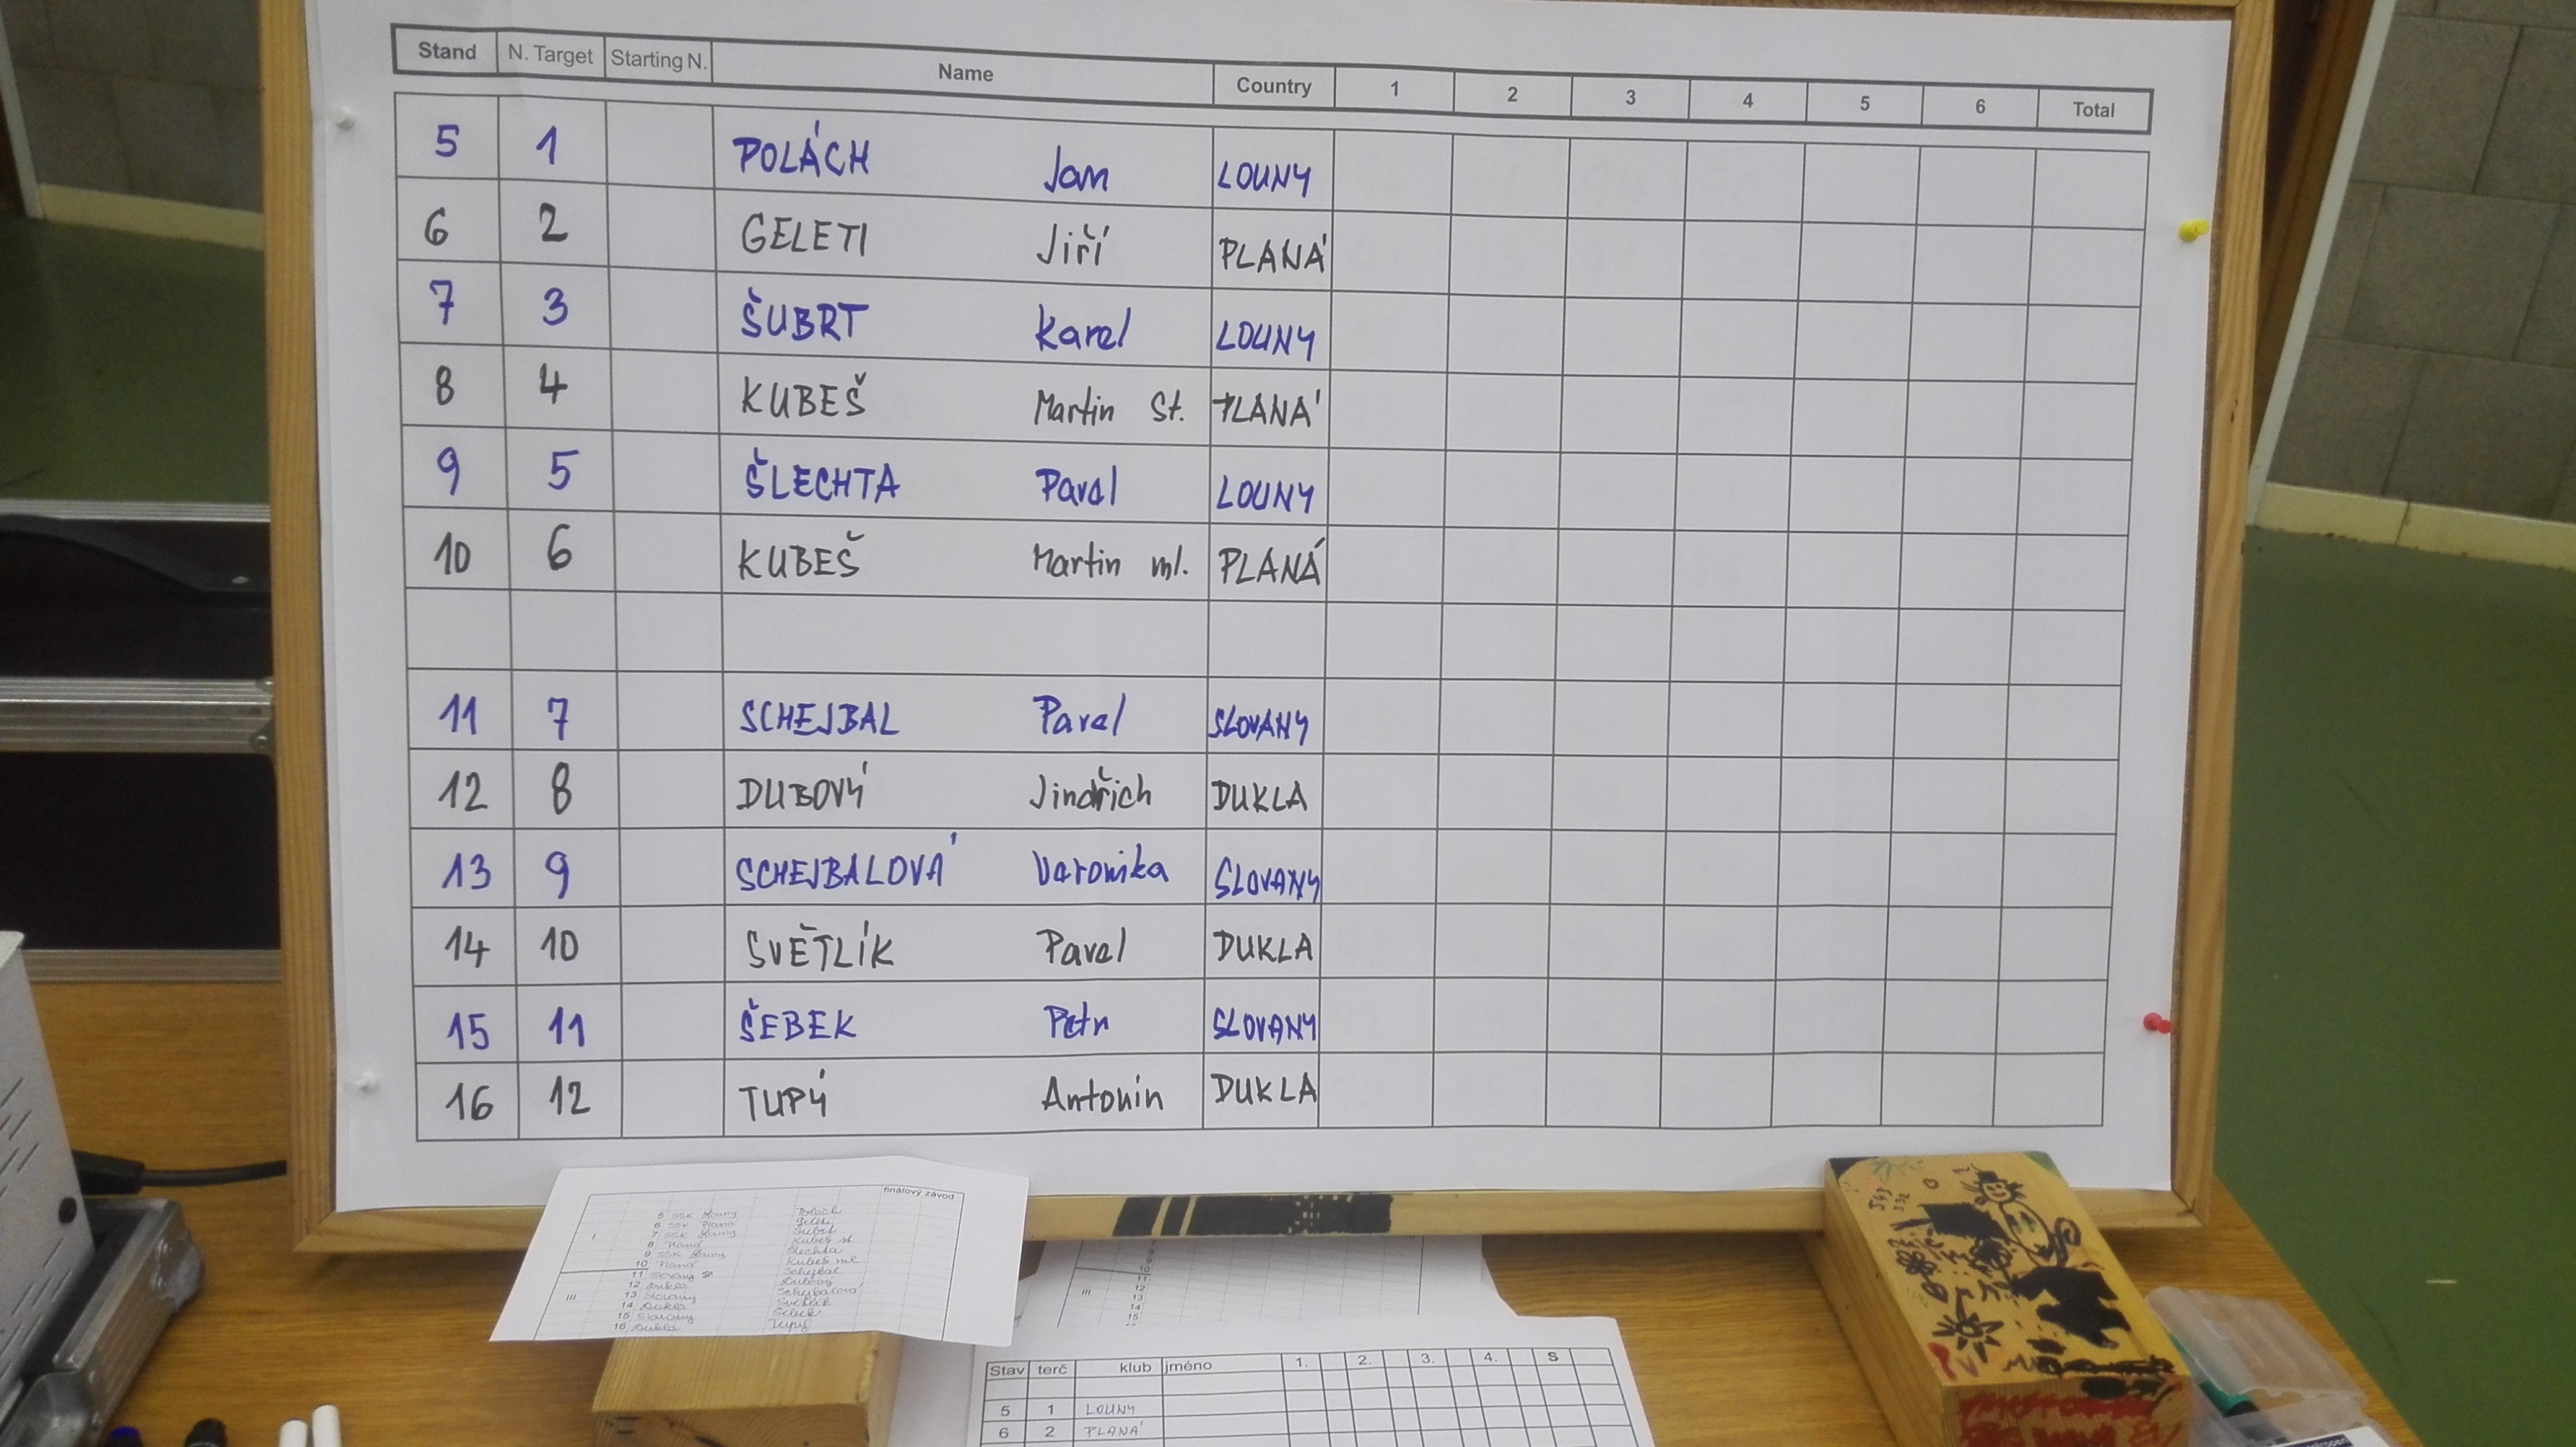 Stand N. Target Starting N. Name Country 1 2 3 4 5 6 Total
5 1 POLÁCH Jan LOUNY
6 2 GELETI Jiří PLANÁ
7 3 ŠUBRT Karel LOUNY
8 4 KUBEŠ Martin St. PLANÁ
9 5 ŠLECHTA Pavel LOUNY
10 6 KUBEŠ Martin ml. PLANÁ
11 7 SCHEJBAL Pavel SLOVANY
12 8 DUBOVÝ Jindřich DUKLA
13 9 SCHEJBALOVÁ Veronika SLOVANY
14 10 SVĚTLÍK Pavel DUKLA
15 11 ŠEBEK Petr SLOVANY
16 12 TUPÝ Antonín DUKLA
finálový závod
5 SSK Louny Polách
6 SSK Planá Geleti
7 SSK Louny Šubrt
8 Planá Kubeš st
I 9 SSK Louny Šlechta
10 Planá Kubeš ml
11 Slovany Schejbal
12 Dukla Dubový
III 13 Slovany Schejbalová
14 Dukla Světlík
15 Slovany Šebek
16 Dukla Tupý
9
10
11
III 12
13
14
15
Stav terč klub jméno 1. 2. 3. 4. S
5 1 LOUNY
6 2 PLANÁ